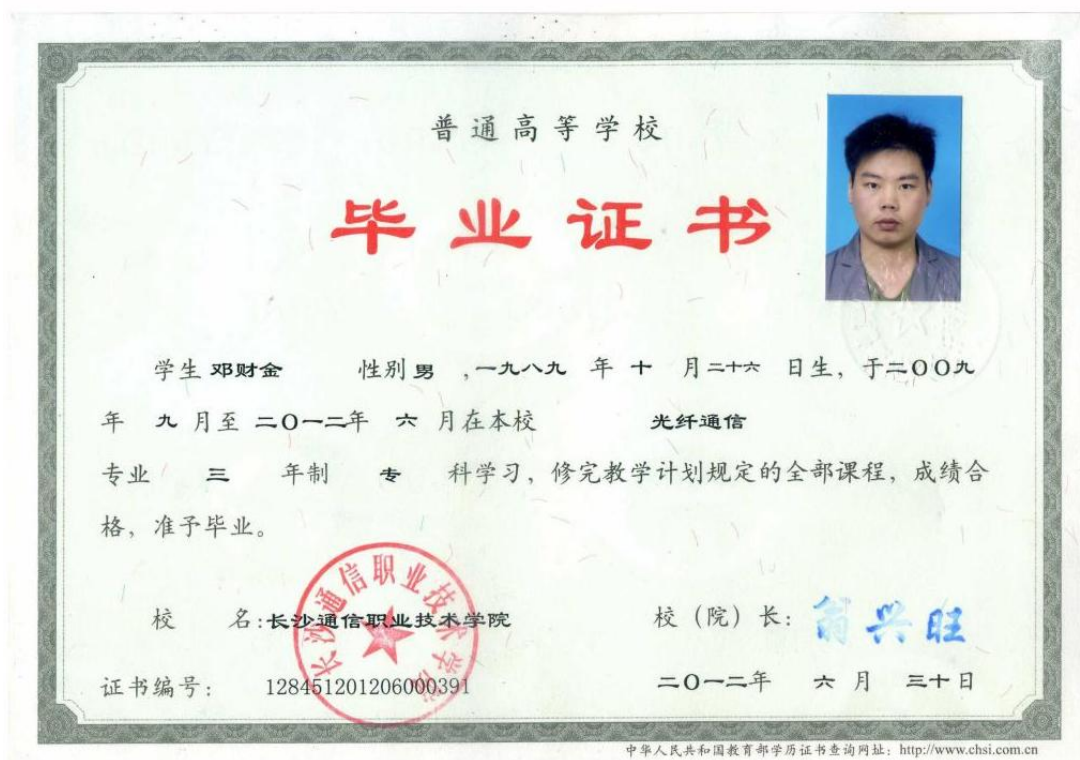 普通高等学校
毕业证书
学生 邓财金 性别 男 ,一九八九 年 十 月 二十六 日生，于二〇〇九
年 九 月至 二〇一二年 六 月在本校 光纤通信
专业 三 年制 专 科学习，修完教学计划规定的全部课程，成绩合
格，准予毕业。
校 名:长沙通信职业技术学院 校（院）长：翁兴旺
长沙通信职业技术学院
证书编号： 128451201206000391 二〇一二年 六 月 三十日
中华人民共和国教育部学历证书查询网址：http://www.chsi.com.cn